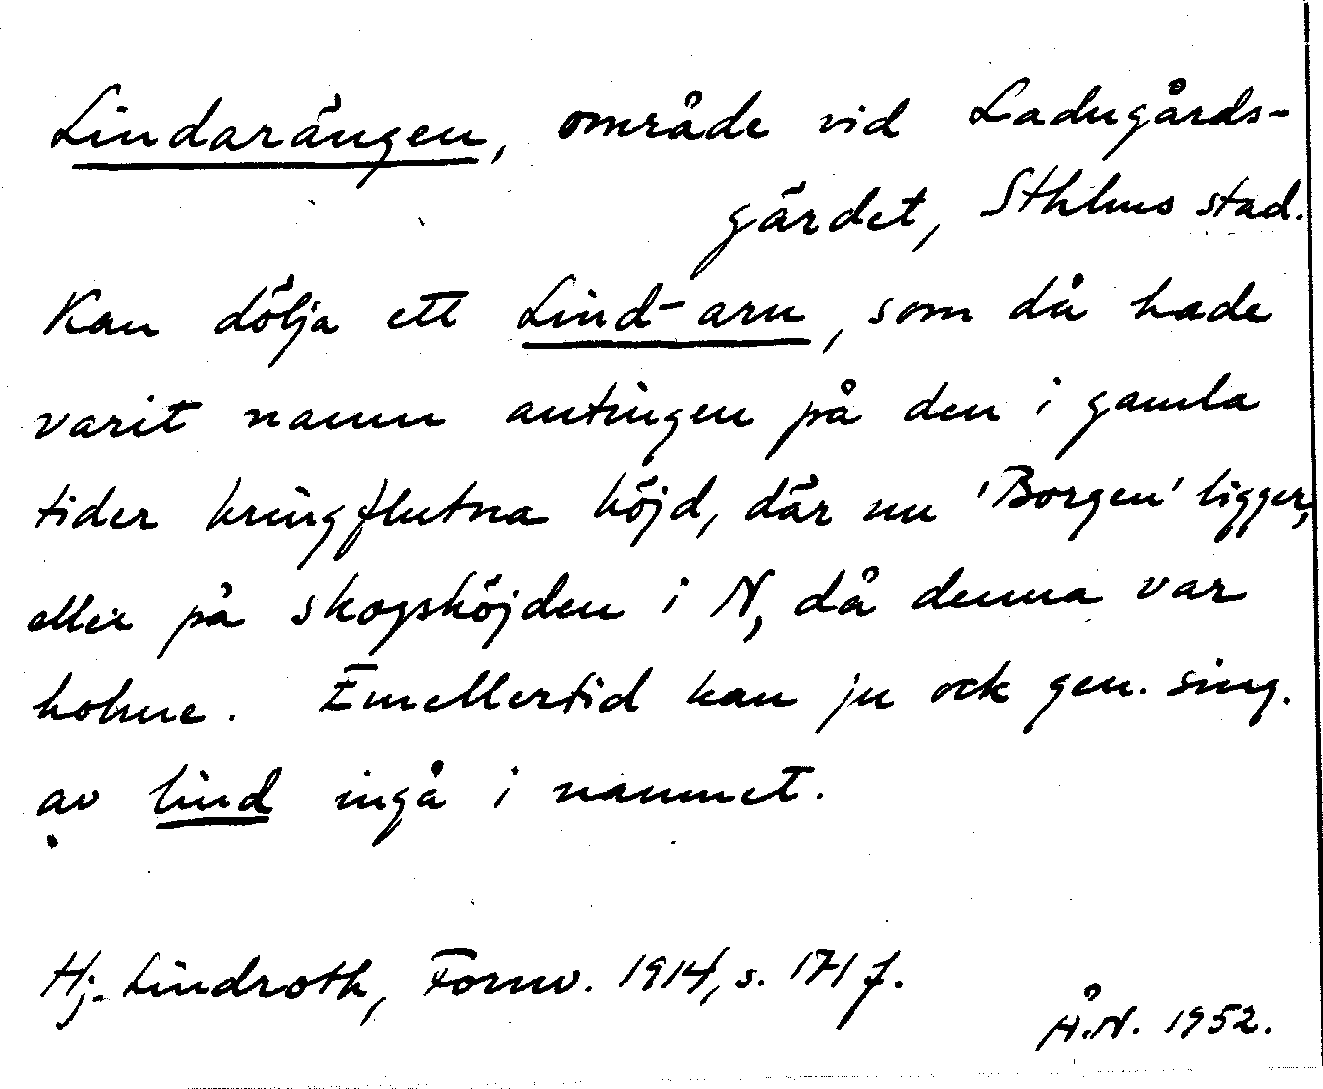 Lindarängen, område vid Ladugårds-
gärdet, Sthlms stad.
Kan dölja ett Lind-arn, som då hade
varit namn antingen på den i gamla
tider kringflutna höjd, där nu 'Borgen' ligger,
eller på skogshöjden i N, då denna var
holme. Emellertid kan ju ock gen. sing.
av lind ingå i namnet.
Hj. Lindroth, Fornv. 1914, s. 171 f.
Å.N. 1952.